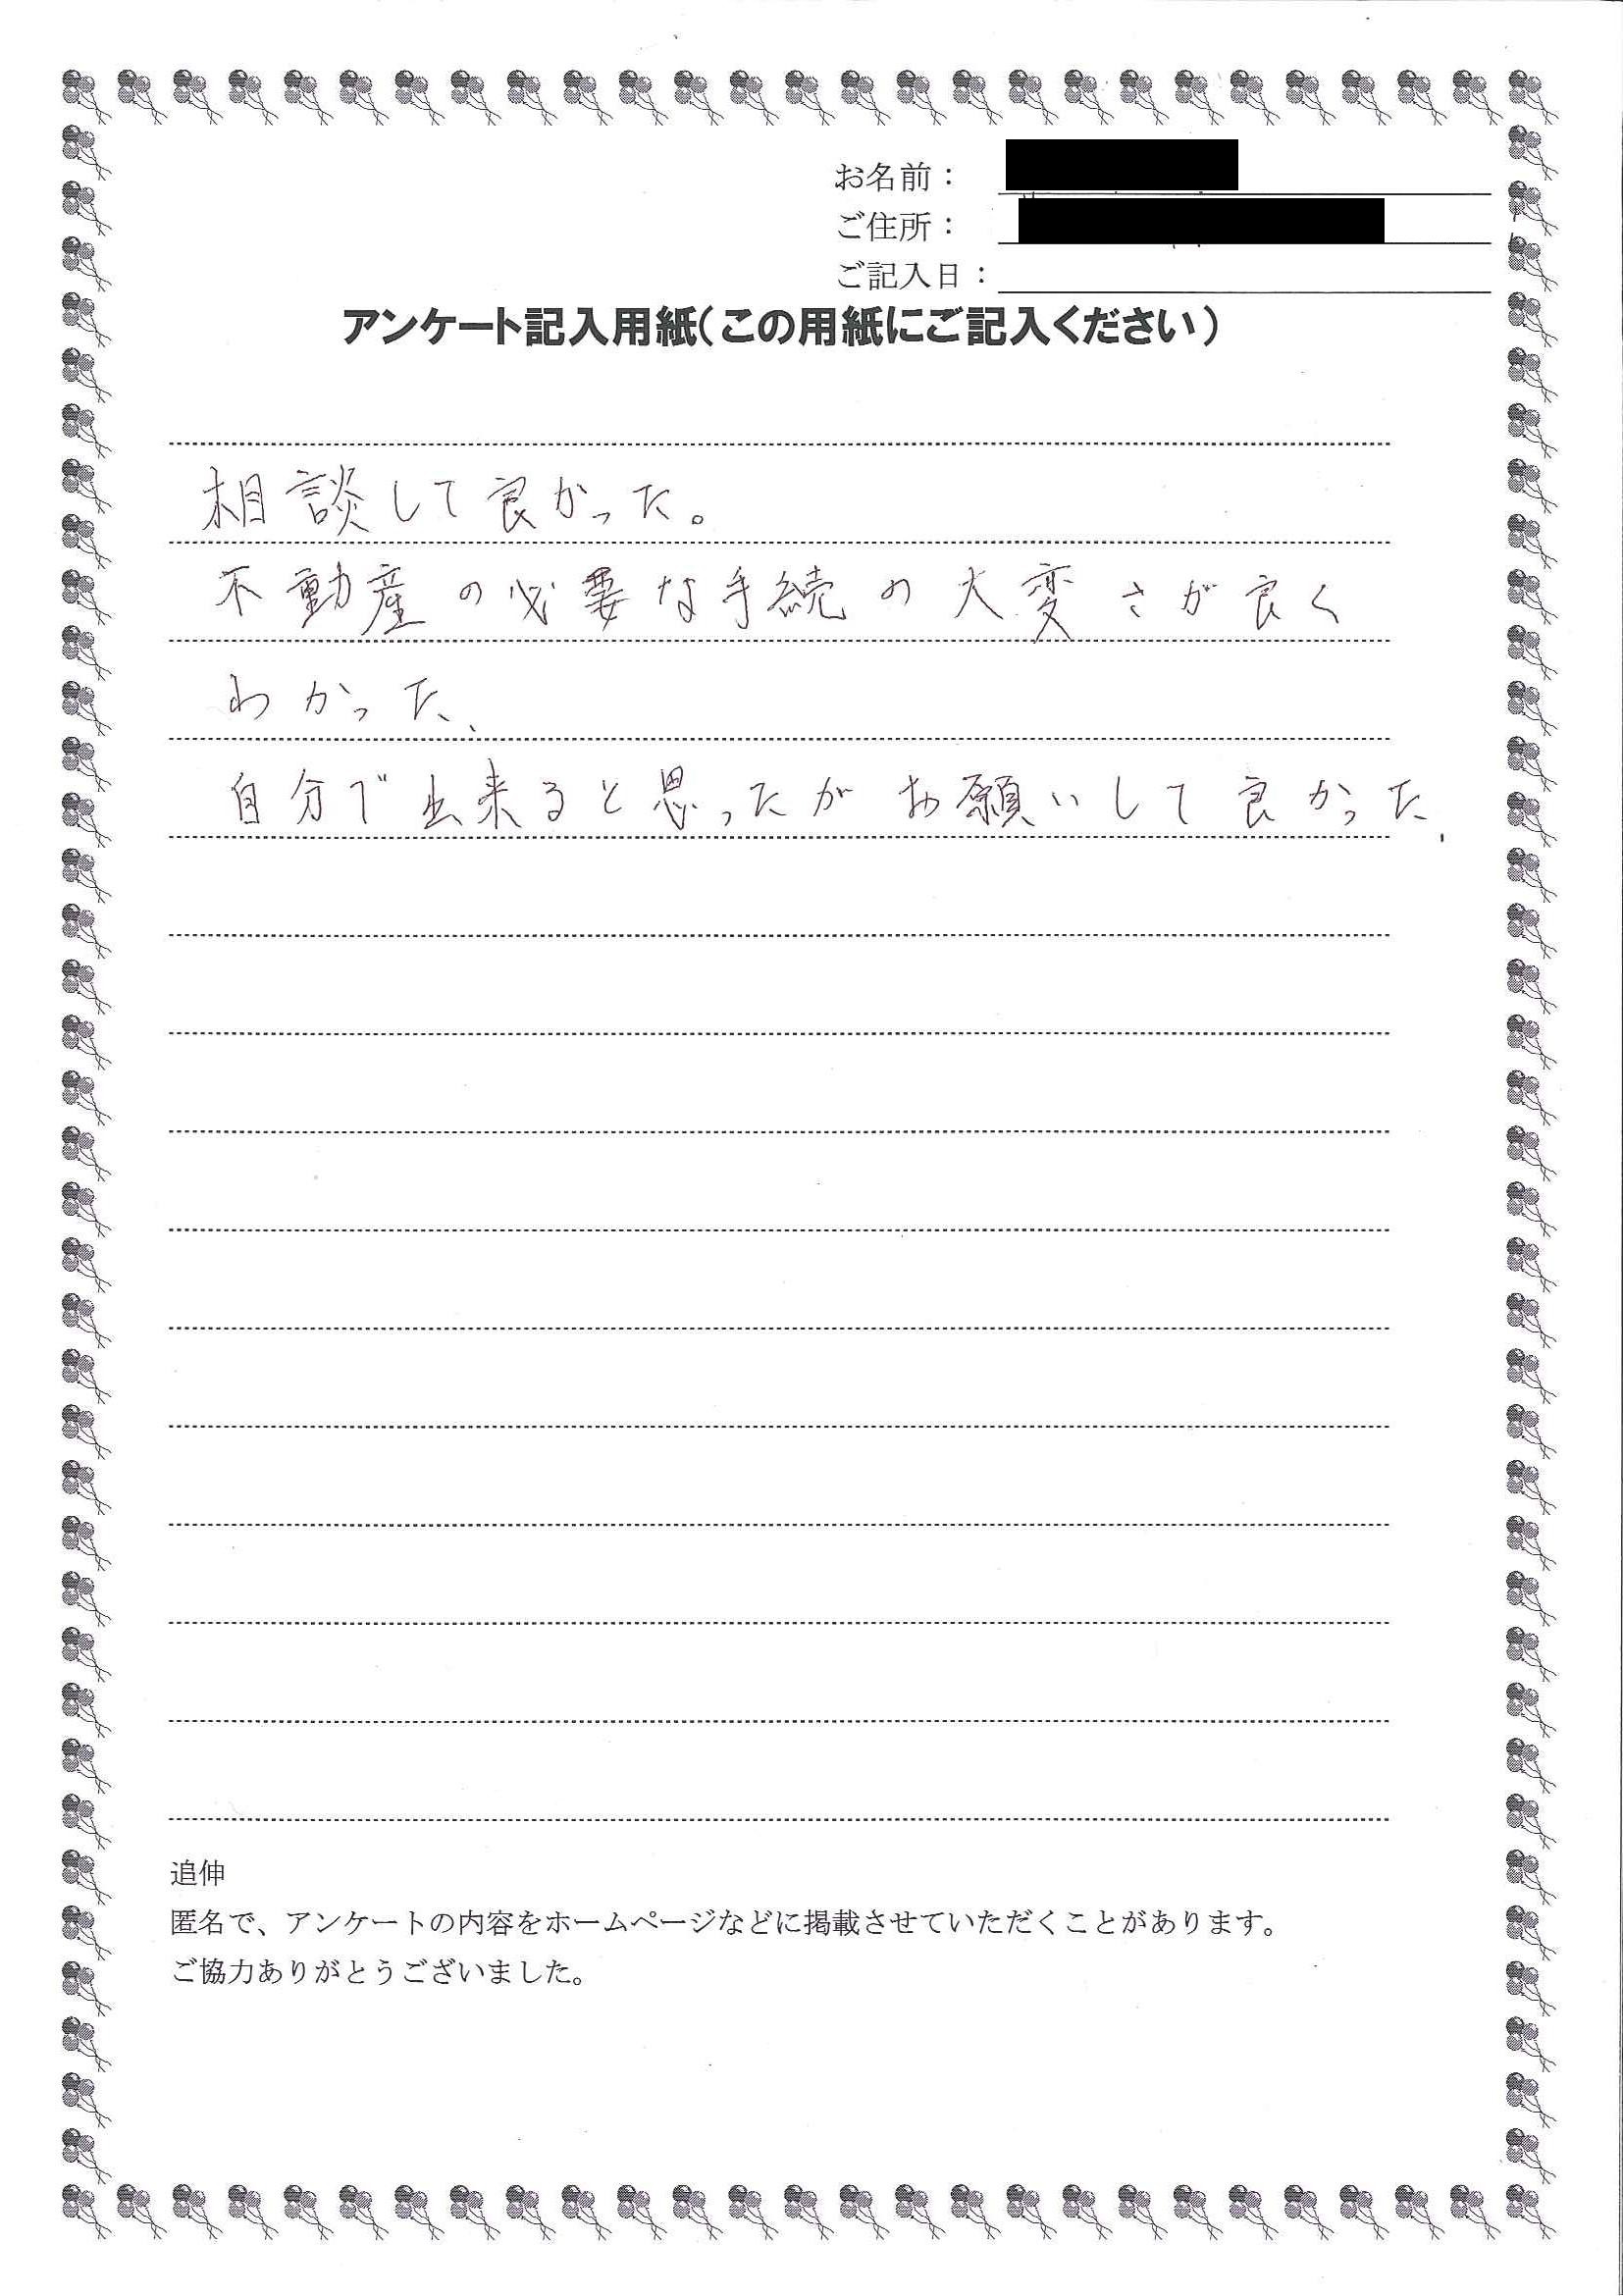 お名前：
ご住所：
ご記入日：
アンケート記入用紙（この用紙にご記入ください）
相談して良かった。
不動産の必要な手続の大変さが良く
わかった、
自分で出来ると思ったがお願いして良かった、
追伸
匿名で、アンケートの内容をホームページなどに掲載させていただくことがあります。
ご協力ありがとうございました。